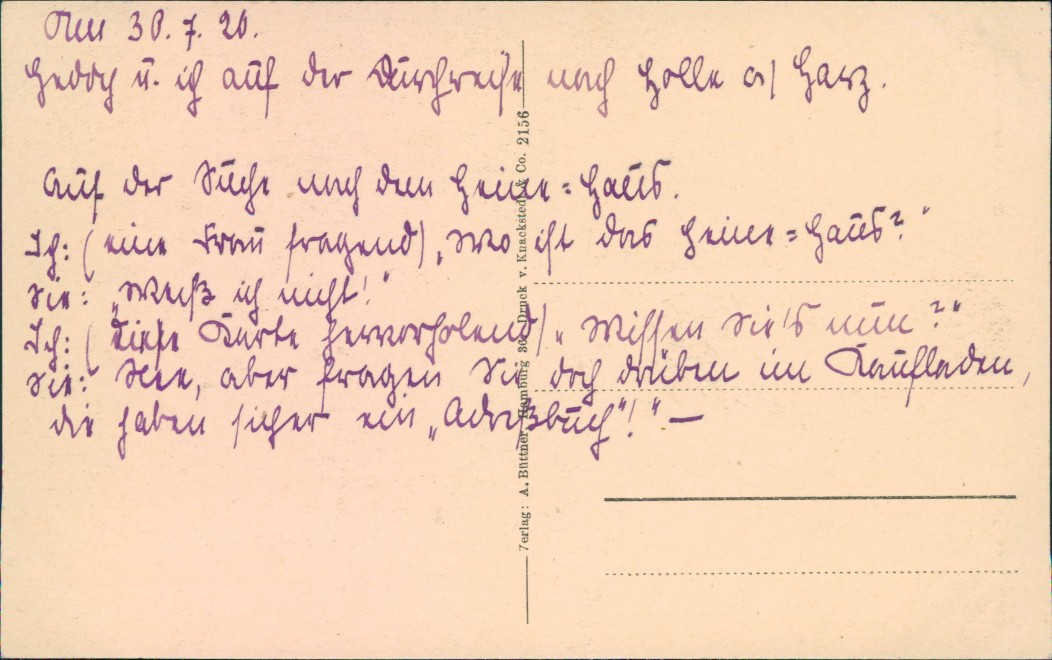 Am 30. 7. 20.
u. ich auf der Durchreise nach Holle a/ Harz.
Auf der Suche nach dem Heine=Haus.
Ich: (eine Frau fragend) „Wo ist das Heine=Haus?"
Sie: „Weiß ich nicht!"
Ich: (diese Karte hervorholend) „Wissen Sie's nun?"
Sie: Nee, aber fragen Sie doch drüben im Kaufladen,
die haben sicher ein „Adreßbuch"!" —
Verlag: A. Büttner, Hamburg 36. Druck v. Knackstedt & Co. 2156